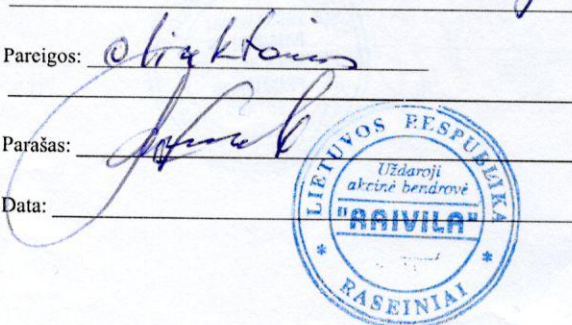 Pareigos: direktorius
Parašas:
Data:
LIETUVOS RESPUBLIKA
Uždaroji
akcinė bendrovė
"RAIVILA"
* RASEINIAI *